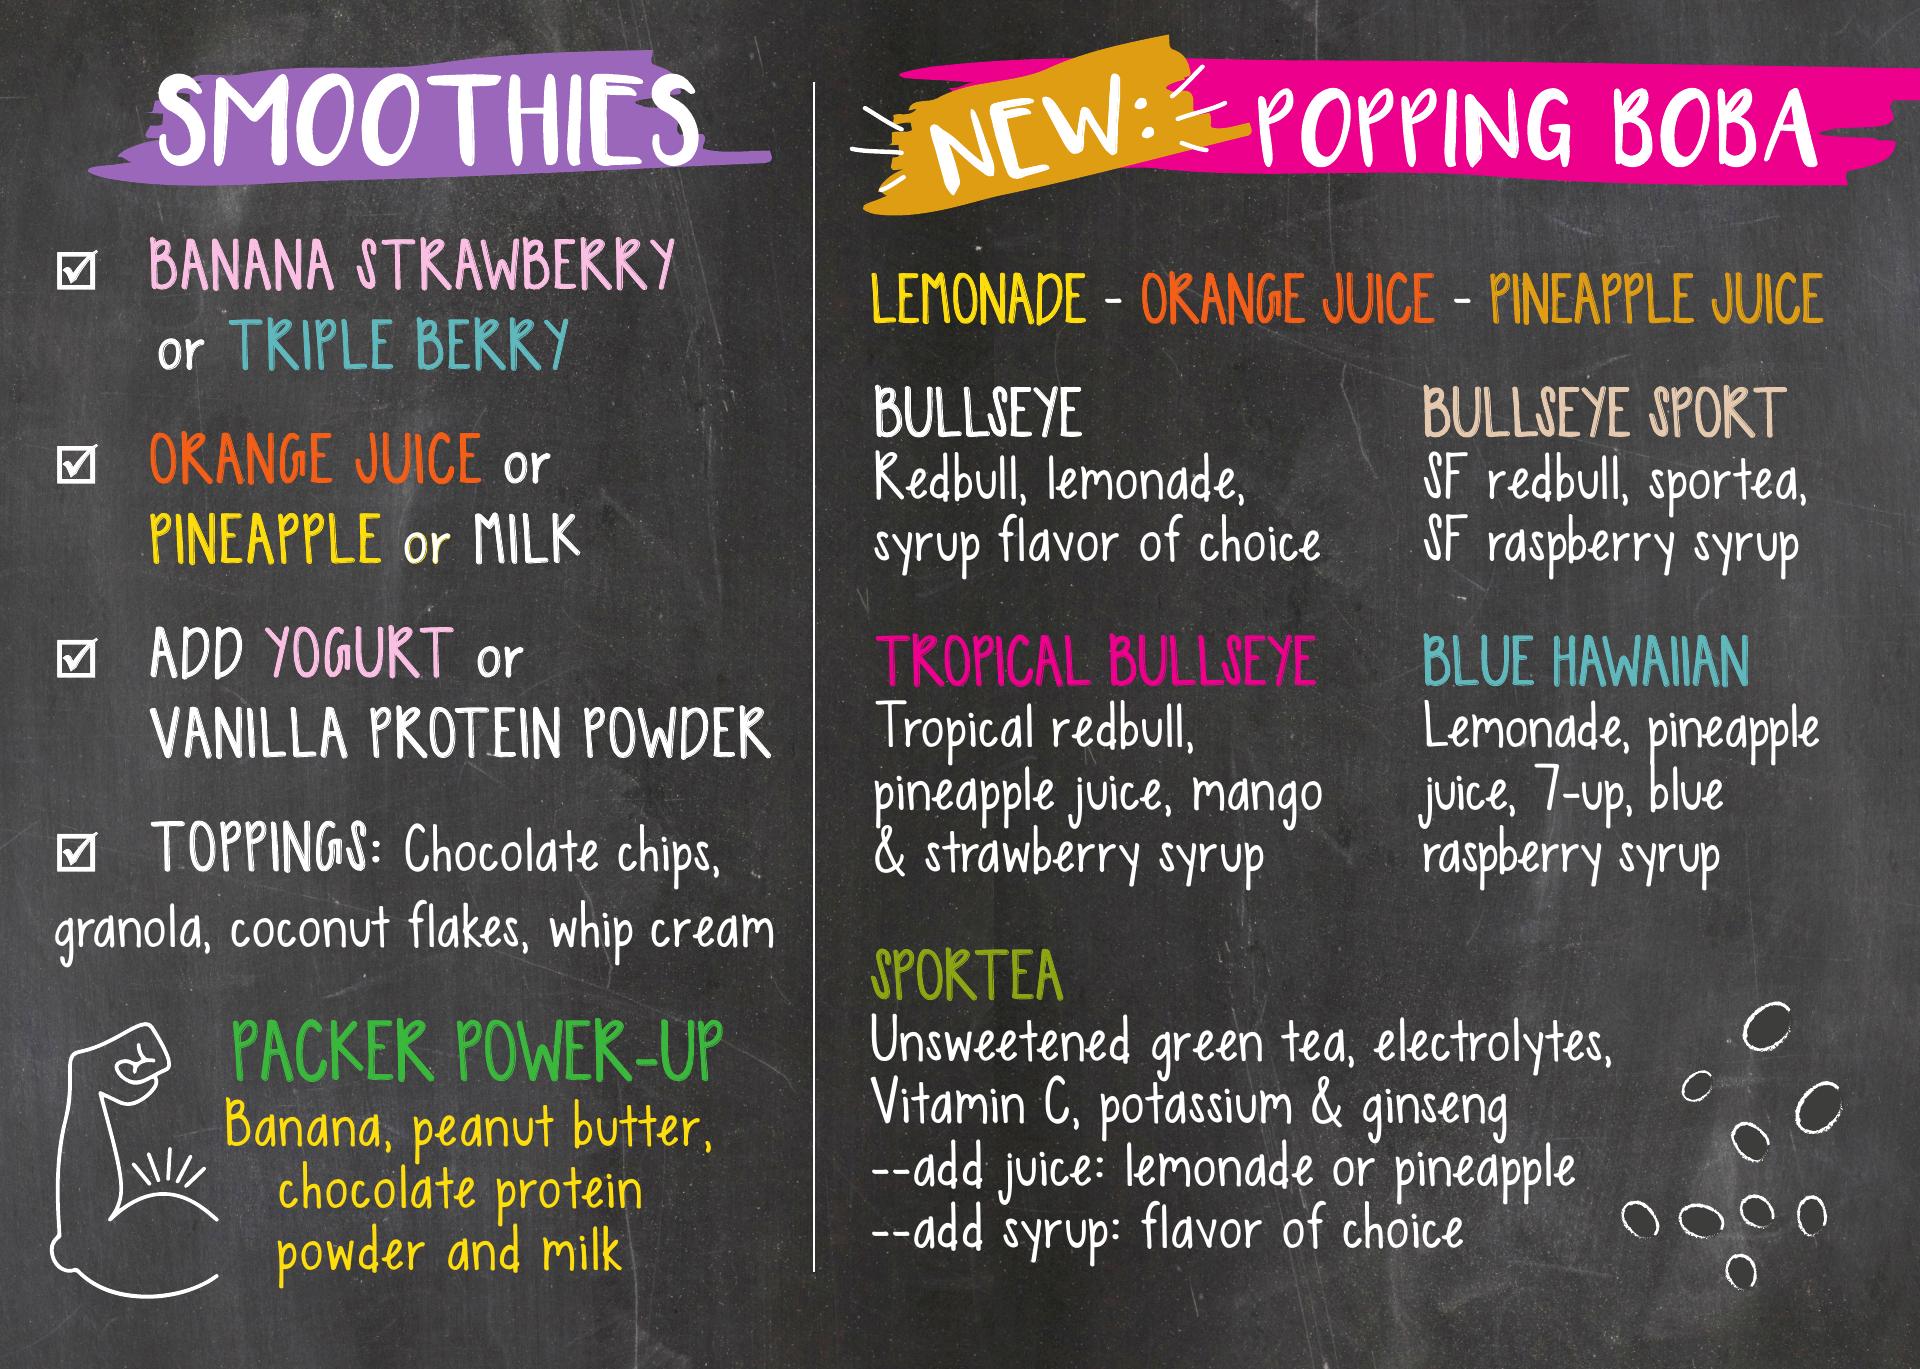 SMOOTHIES
BANANA STRAWBERRY
or TRIPLE BERRY
ORANGE JUICE or
PINEAPPLE or MILK
ADD YOGURT or
VANILLA PROTEIN POWDER
TOPPINGS: Chocolate chips,
granola, coconut flakes, whip cream
PACKER POWER-UP
Banana, peanut butter,
chocolate protein
powder and milk
NEW: POPPING BOBA
LEMONADE - ORANGE JUICE - PINEAPPLE JUICE
BULLSEYE
Redbull, lemonade,
syrup flavor of choice
BULLSEYE SPORT
SF redbull, sportea,
SF raspberry syrup
TROPICAL BULLSEYE
Tropical redbull,
pineapple juice, mango
& strawberry syrup
BLUE HAWAIIAN
Lemonade, pineapple
juice, 7-up, blue
raspberry syrup
SPORTEA
Unsweetened green tea, electrolytes,
Vitamin C, potassium & ginseng
--add juice: lemonade or pineapple
--add syrup: flavor of choice